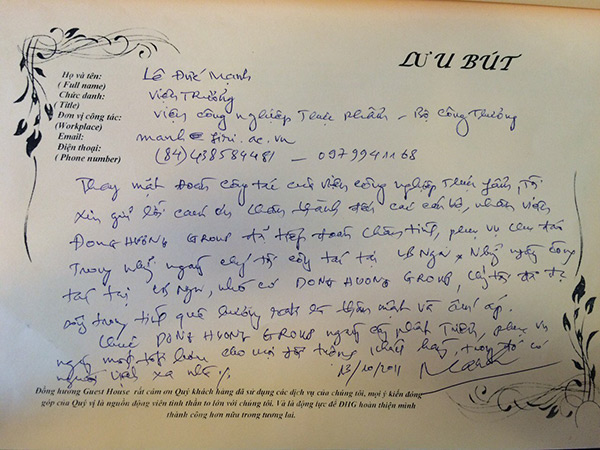 LƯU BÚT
Họ và tên: Lê Đức Mạnh
( Full name)
Chức danh: Viện Trưởng
(Title)
Đơn vị công tác: Viện công nghiệp Thực phẩm - Bộ Công Thương
(Workplace)
Email: manh@firi.ac.vn
Điện thoại: (84)438584481 - 0979941168
( Phone number)
Thay mặt đoàn công tác của Viện công nghiệp Thực phẩm, Tôi
xin gửi lời cảm ơn chân thành đến các cán bộ, nhân viên
ĐONG HUONG GROUP đã tiếp đoàn chân tình, phục vụ chu đáo
Trong những ngày chúng tôi công tác tại LB Nga. Những ngày công
tác tại LB Nga, nhờ có DONG HUONG GROUP, chúng tôi đã được
sống trong tình quê hương thân mình và ấm áp.
Chúc DONG HUONG GROUP ngày càng phát Triển, phục vụ
ngày một tốt hơn cho mọi đối tượng khách hàng, trong đó có
người Việt xa nhà.
13/10/2011
Đồng hương Guest House rất cám ơn Quý khách hàng đã sử dụng các dịch vụ của chúng tôi, mọi ý kiến đóng
góp của Quý vị là nguồn động viên tinh thần to lớn với chúng tôi, Và là động lực để DHG hoàn thiện mình
thành công hơn nữa trong tương lai.